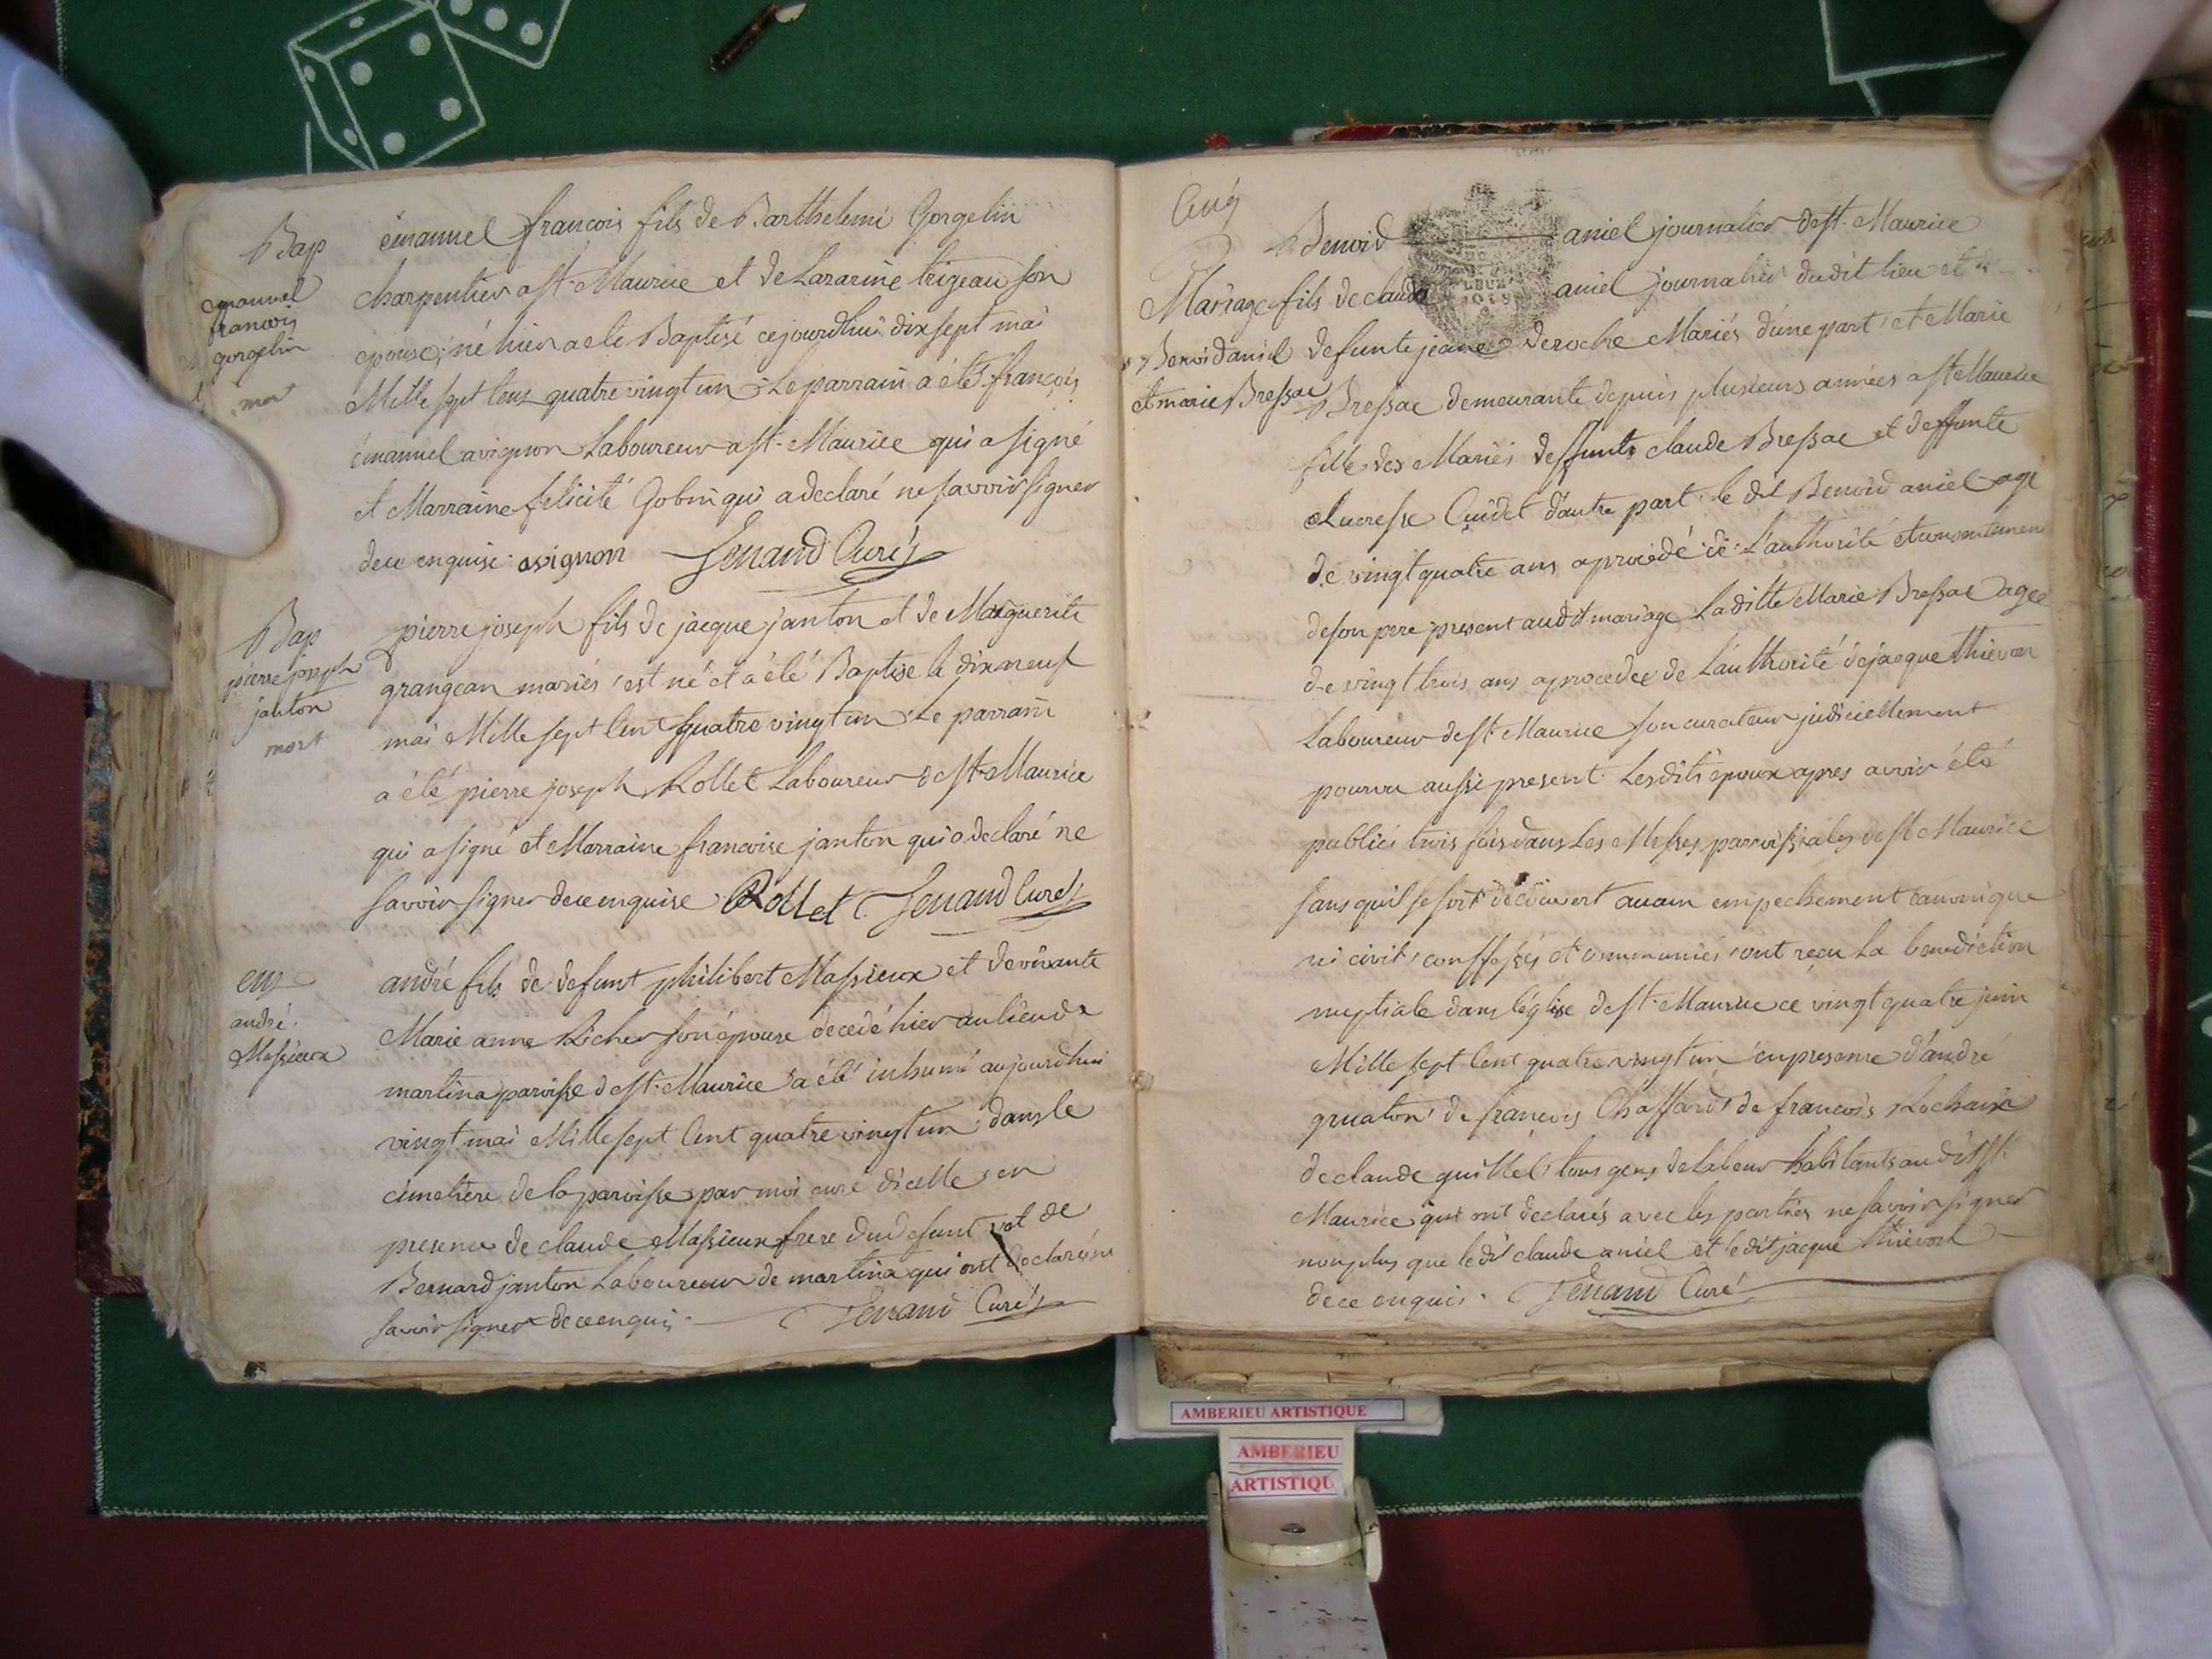 Bap
emanuel
francois
gorgelin
mort
émanuel françois fils de Barthelemi Gorgelin
charpentier a st. Maurice et de Lazarine trigeau son
epouse, né hier a ete Baptisé cejourdhui dix sept mai
Mille sept Cens quatre vingt un. Le parrain a été françois
émanuel avignon Laboureur a st. Maurice qui a signé
et Marraine felicité Gobin qui a declaré ne savoir signer
de ce enquise. avignon Curé
Bap
pierre joseph
janton
mort
pierre joseph fils de jacque janton et de Marguerite
grangean mariés est né et a été Baptise le dix neuf
mai Mille sept Cent quatre vingt un. Le parrain
a été pierre joseph Rollet Laboureur de st. Maurice
qui a signé et Marraine francoise janton qui a declaré ne
savoir signer de ce enquise. Rollet Curé
andré
Massieux
andré fils de defunt philibert Massieux et de vivante
Marie anne Richer son épouse decedé hier au lieu de
martina paroisse de st. Maurice a été inhumé aujourdhui
vingt mai Mille sept Cent quatre vingt un dans le
cimetière de la paroisse par moi curé dicelle en
presence de claude Massieux frere du defunt et de
Bernard janton Laboureur de martina qui ont declaré ne
savoir signer de ce enquis. Curé
Mariage
Benoid aniel
et marie Bressac
Benoid aniel journalier de st. Maurice
fils de claude aniel journalier dudit lieu et
defunte jeanne deroche Mariés d'une part, et Marie
Bressac demeurante depuis plusieurs années a st Maurice
fille des Mariés deffunts claude Bressac et deffunte
Lucresse Cuidet d'autre part. le dit Benoid aniel agé
de vingt quatre ans a procédé de L'authorité et
de son pere present audit mariage La ditte Marie Bressac agée
de vingt trois ans a procedée de L'authorité de jacque thievon
Laboureur de st. Maurice son curateur judiciellement
pourvu aussi present. Lesdits epoux apres avoir été
publiés trois fois dans Les Messes parroissiales de st Maurice
sans quil se soit découvert aucun empechement canonique
ni civil, conffessés et communiés ont reçu La benediction
nuptiale dans léglise de st. Maurice ce vingt quatre juin
Mille sept Cent quatre vingt un en presence d'andré
gruaton, de françois Chaffard, de francois Rochaix
de claude quillel, tous gens de Labeur habitants audit st.
Maurice qui ont declarés avec les parties ne savoir signer
non plus que ledit claude aniel et ledit jacque thievon
de ce enquis. Curé
AMBERIEU ARTISTIQUE
AMBERIEU
ARTISTIQU